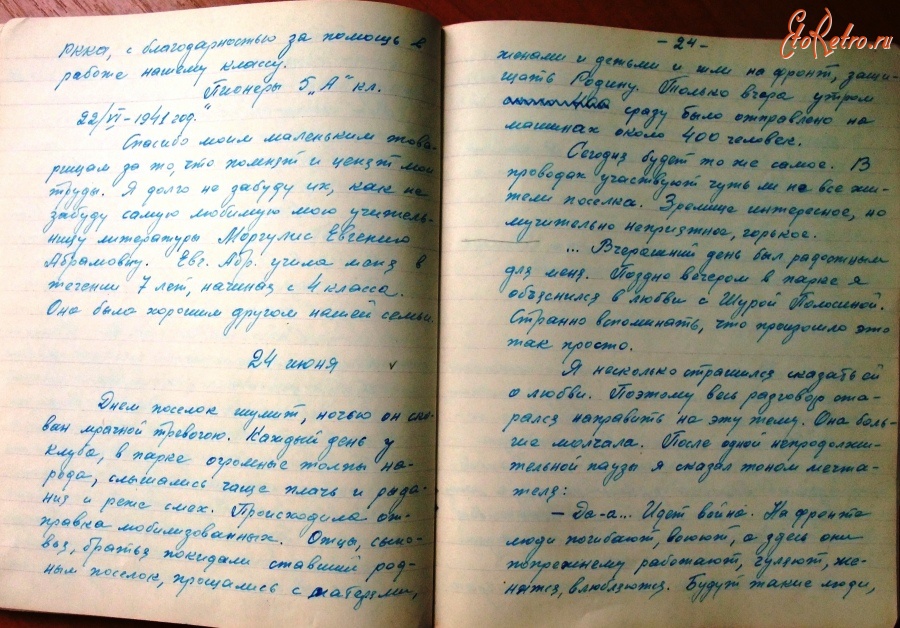 РККА, с благодарностью за помощь в
работе нашему классу.
Пионеры 5 „А" кл.
22/VI-1941 год."
Спасибо моим маленьким това-
рищам за то, что помнят и ценят мои
труды. Я долго не забуду их, как не
забуду самую любимую мою учитель-
ницу литературы Моргулис Евгению
Абрамовну. Евг. Абр. учила меня в
течении 7 лет, начиная с 4 класса.
Она была хорошим другом нашей семьи.
24 июня
Днем поселок шумит, ночью он ско-
ван мрачной тревогою. Каждый день у
клуба, в парке огромные толпы на-
рода, слышались чаще плачь и рыда-
ния и реже смех. Происходила от-
правка мобилизованных. Отцы, сыно-
вья, братья покидали ставший род-
ным поселок, прощались с матерями,
- 24 -
женами и детьми и шли на фронт, защи-
щать Родину. Только вчера утром
сразу было отправлено на
машинах около 400 человек.
Сегодня будет то же самое. В
проводах участвуют чуть ли не все жи-
тели поселка. Зрелище интересное, но
мучительно неприятное, горькое.
... Вчерашний день был радостным
для меня. Поздно вечером в парке я
объяснился в любви с Шурой Полосиной.
Странно вспоминать, что произошло это
так просто.
Я несколько страшился сказать ей
о любви. Поэтому весь разговор ста-
рался направить на эту тему. Она боль-
ше молчала. После одной непродолжи-
тельной паузы я сказал тоном мечта-
теля:
- Да-а... Идет война. На фронте
люди погибают, воюют, а здесь они
попрежнему работают, гуляют, же-
нятся, влюбляются. Будут такие люди,
EtoRetro.ru